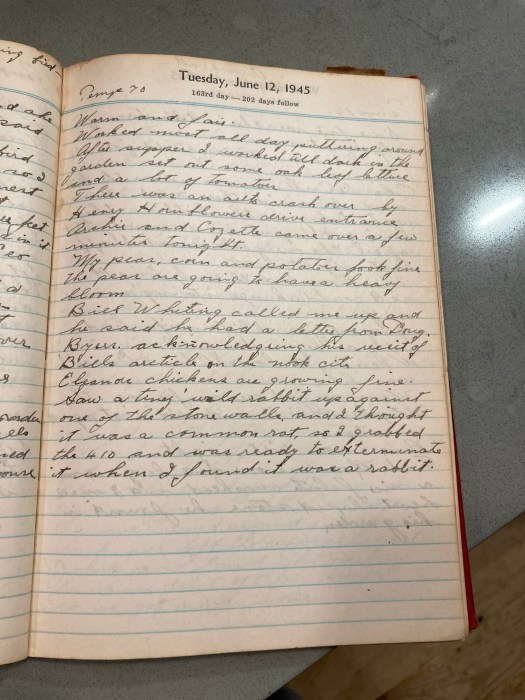 ing find
nd she
said
bird
so I
nest
t
feet
in it
Geo
a
t
over
ells
ned
ouse
Tuesday, June 12, 1945
Temp 70
163rd day — 202 days follow
Warm and fair.
Worked most all day puttering around
After supper I worked till dark in the
garden set out some oak leaf lettuce
and a lot of tomatoes
There was an auto crash over by
Henry Hornblowers drive entrance
Archie and Cozette came over a few
minutes tonight.
My peas, corn and potatoes look fine
the peas are going to have a heavy
bloom
Bill Whiting called me up and
he said he had a letter from Cong.
Byers. acknowledgeing his receit of
Bills arcticle on the nook citi
Eleanor chickens are growing fine.
Saw a tiney wild rabbit up against
one of the stone walls, and I thought
it was a common rat, so I grabbed
the 410 and was ready to exterminate
it when I found it was a rabbit.